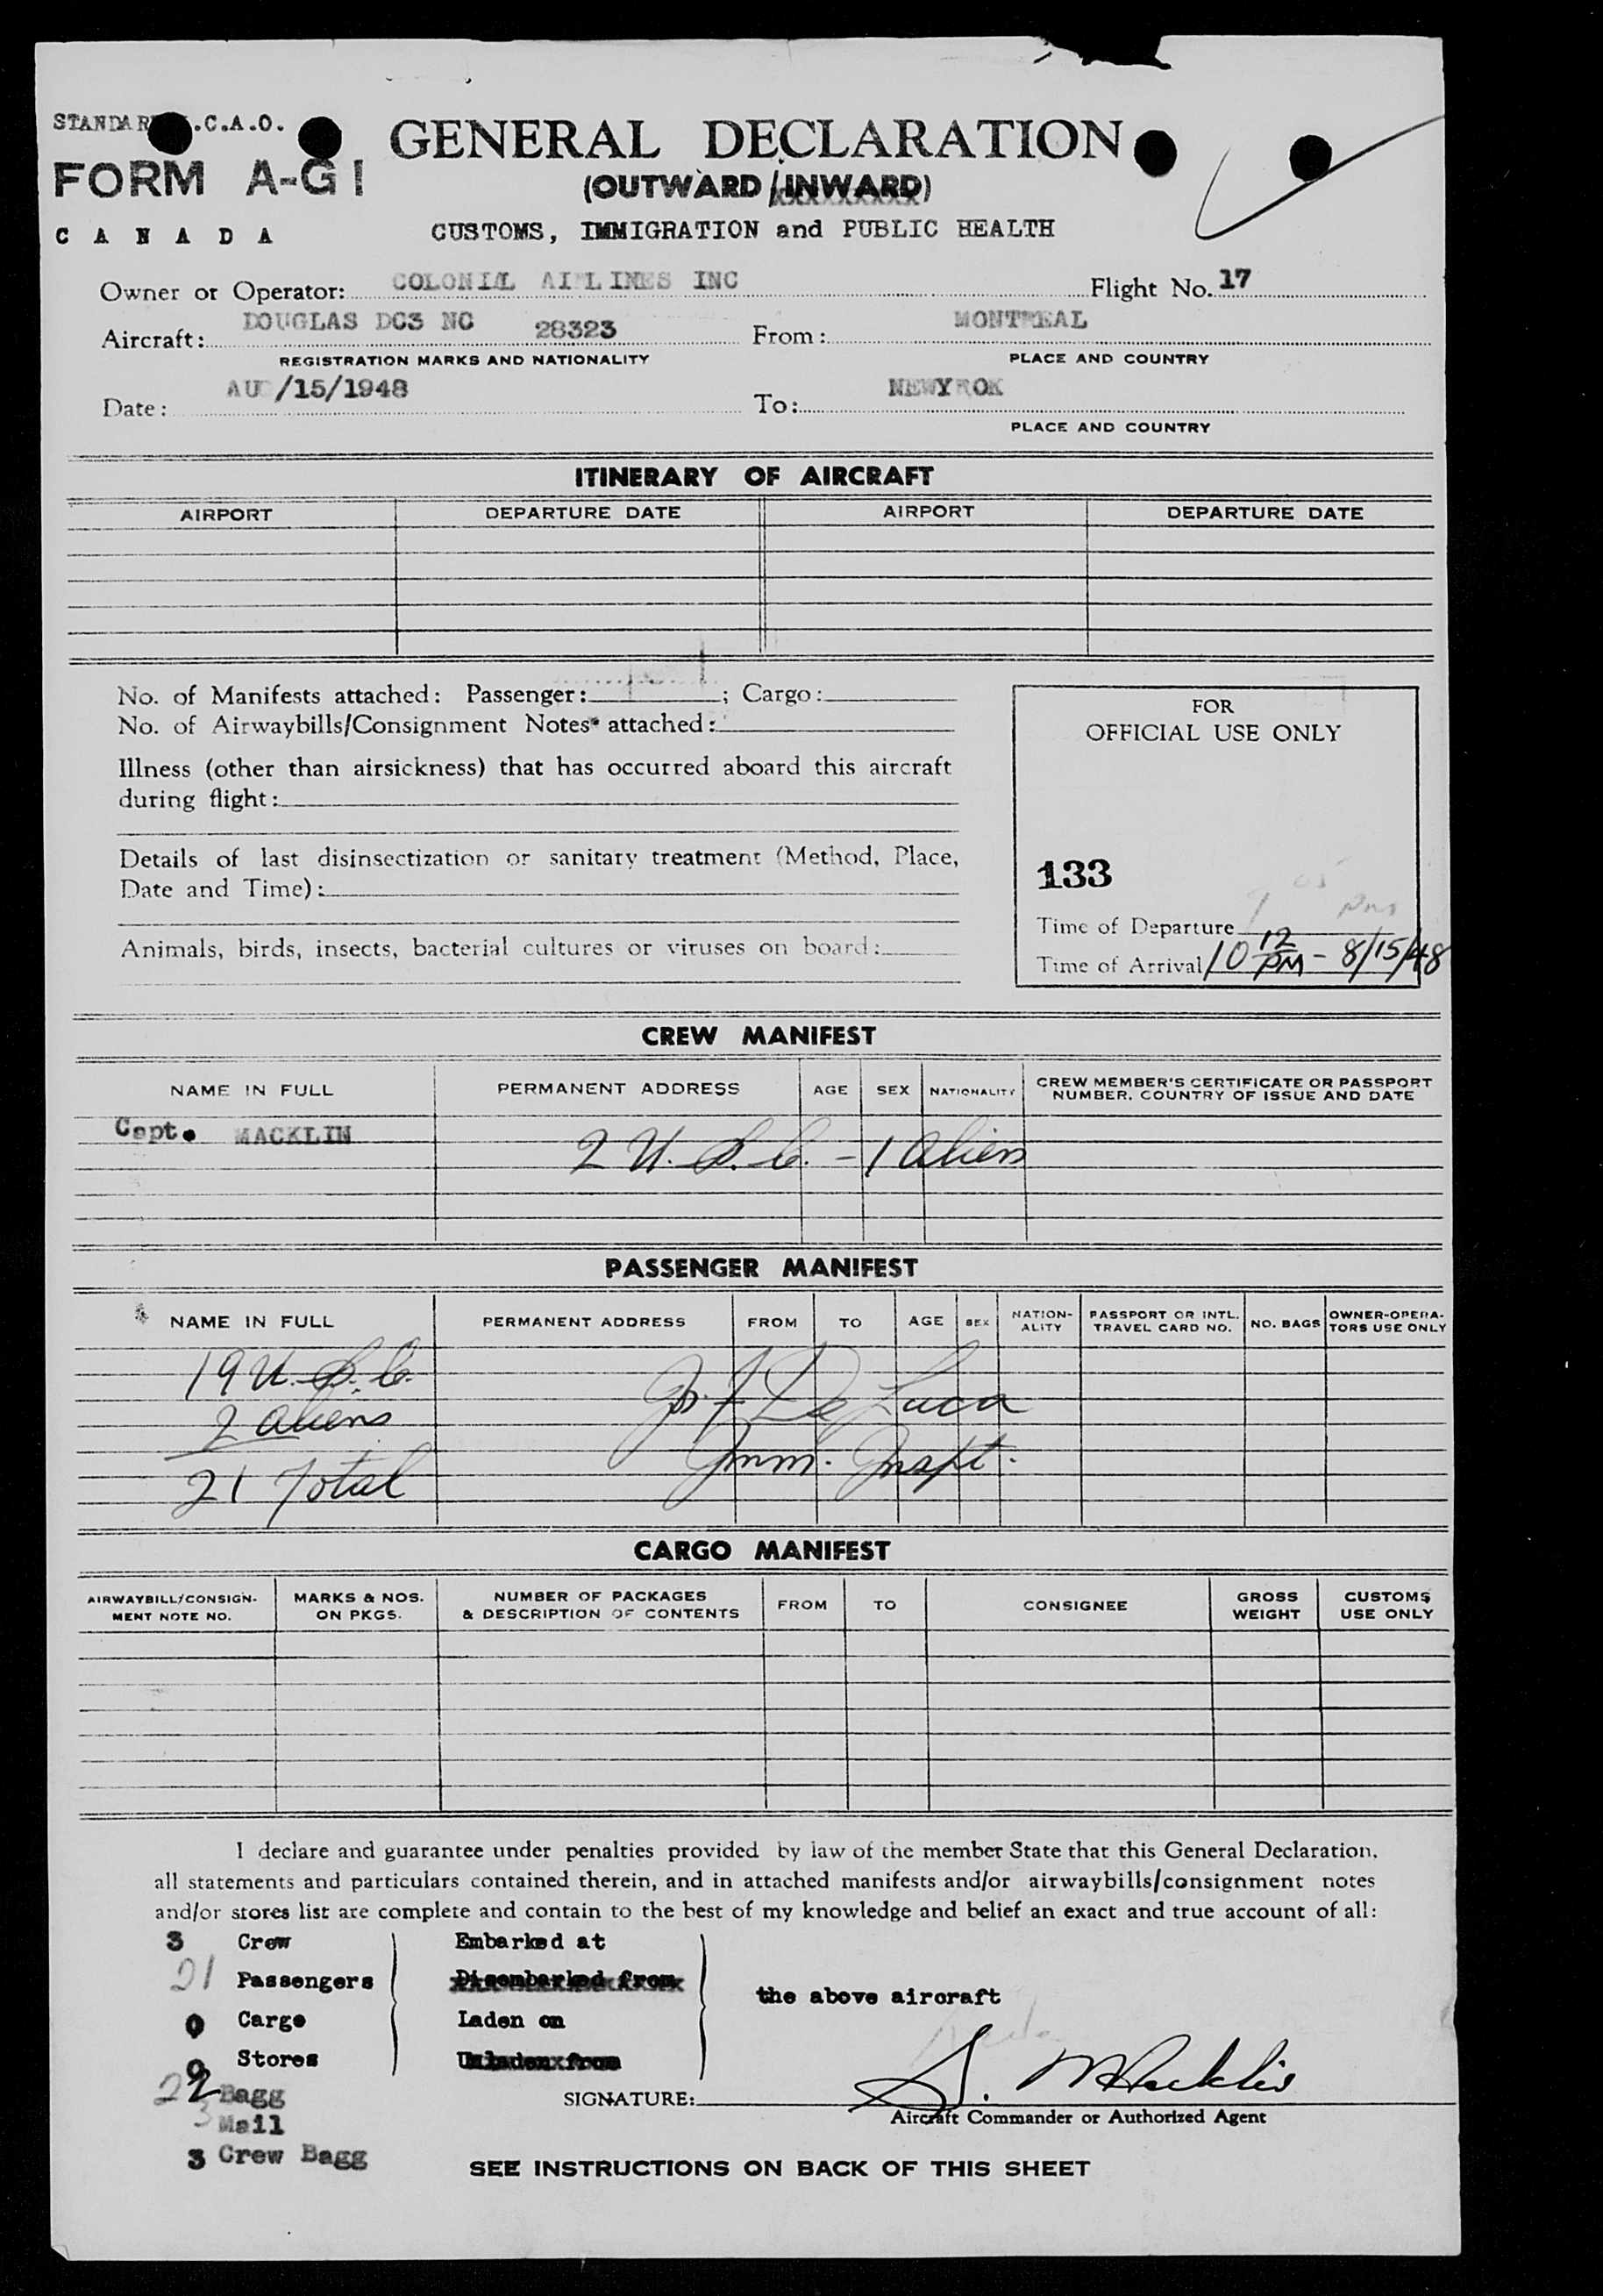 STANDARD I.C.A.O.
GENERAL DECLARATION
FORM A-G1
(OUTWARD/INWARD)
CANADA
CUSTOMS, IMMIGRATION and PUBLIC HEALTH
Owner or Operator: COLONIAL AIRLINES INC Flight No. 17
Aircraft: DOUGLAS DC3 NC 28323 From: MONTREAL
REGISTRATION MARKS AND NATIONALITY PLACE AND COUNTRY
Date: AUG/15/1948 To: NEWYROK
PLACE AND COUNTRY
ITINERARY OF AIRCRAFT
AIRPORT DEPARTURE DATE AIRPORT DEPARTURE DATE
No. of Manifests attached: Passenger: ; Cargo:
No. of Airwaybills/Consignment Notes attached:
Illness (other than airsickness) that has occurred aboard this aircraft
during flight:
Details of last disinsectization or sanitary treatment (Method, Place,
Date and Time):
Animals, birds, insects, bacterial cultures or viruses on board:
FOR
OFFICIAL USE ONLY
133
Time of Departure 9 05 pm
Time of Arrival 10 12 PM - 8/15/48
CREW MANIFEST
NAME IN FULL PERMANENT ADDRESS AGE SEX NATIONALITY CREW MEMBER'S CERTIFICATE OR PASSPORT
NUMBER, COUNTRY OF ISSUE AND DATE
Capt. MACKLIN
2 U.S.C. - 1 Alien
PASSENGER MANIFEST
NAME IN FULL PERMANENT ADDRESS FROM TO AGE SEX NATION-
ALITY PASSPORT OR INTL.
TRAVEL CARD NO. NO. BAGS OWNER-OPERA-
TORS USE ONLY
19 U.S.C.
2 Aliens
21 Total
Jos. F. De Luca
Imm. Inspt.
CARGO MANIFEST
AIRWAYBILL/CONSIGN-
MENT NOTE NO. MARKS & NOS.
ON PKGS. NUMBER OF PACKAGES
& DESCRIPTION OF CONTENTS FROM TO CONSIGNEE GROSS
WEIGHT CUSTOMS
USE ONLY
I declare and guarantee under penalties provided by law of the member State that this General Declaration,
all statements and particulars contained therein, and in attached manifests and/or airwaybills/consignment notes
and/or stores list are complete and contain to the best of my knowledge and belief an exact and true account of all:
3 Crew Embarked at
21 Passengers Disembarked from
the above aircraft
0 Cargo Laden on
0 Stores Unladen from
22 Bagg
3 Mail
3 Crew Bagg
SIGNATURE: S. Macklin
Aircraft Commander or Authorized Agent
SEE INSTRUCTIONS ON BACK OF THIS SHEET